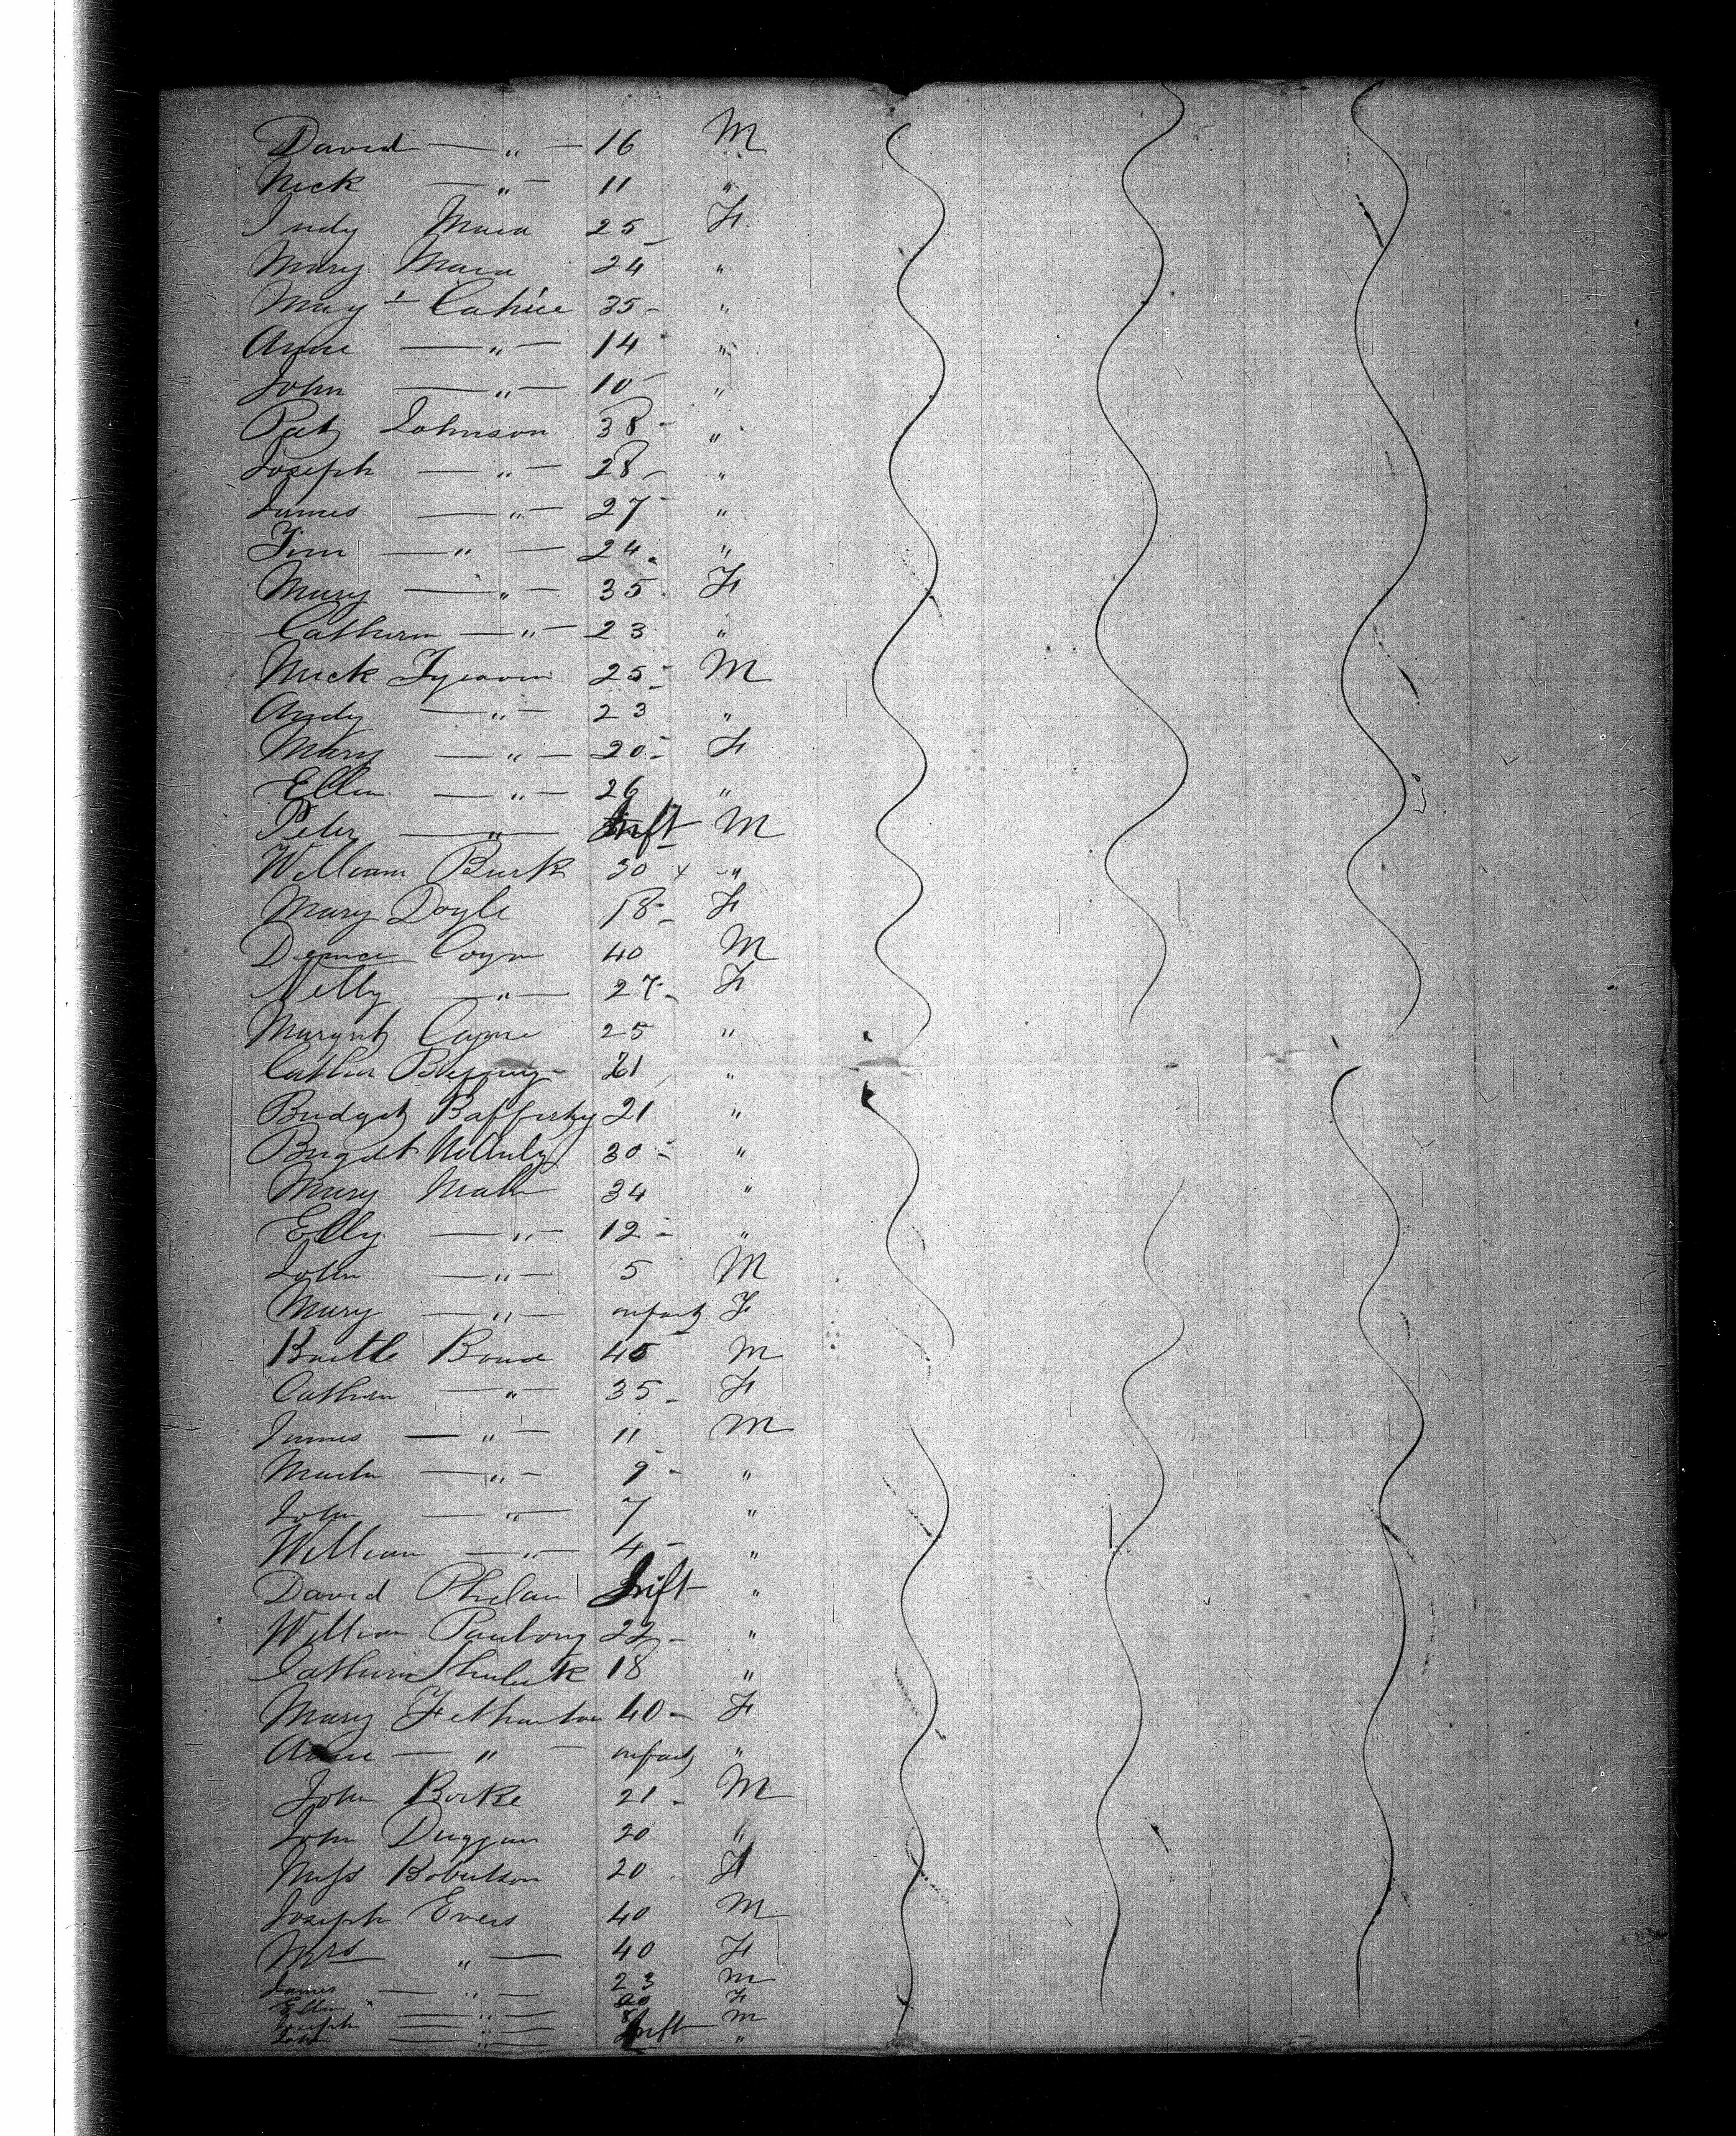 David — " — 16 M
Nick — " — 11 "
Judy Mara 25 F
Mary Mara 24 "
Mary Cahill 35 "
Anne — " — 14 "
John — " — 10 "
Pat Johnson 38 "
Joseph — " — 28 "
James — " — 27 "
Tim — " — 24 "
Mary — " — 35 F
Cathern — " — 23 "
Nick 25 M
Andy — " — 23 "
Mary — " — 20 F
Ellen — " — 26 "
Peter — " — Inft M
William Burk 30 x "
Mary Doyle 18 F
Coyne 40 M
Nelly — " — 27 F
Margret Coyne 25 "
21 "
Bridget Rafferty 21 "
Brigdet 30 "
Mary 34 "
Elly — " — 12 "
John — " — 5 M
Mary — " — infant F
Bartle 45 M
Cathern — " — 35 F
James — " — 11 M
Martin — " — 9 "
John — " — 7 "
William — " — 4 "
David Phelan Inft "
William 22 "
Cathern 18 "
Mary 40 F
Anne — " — infant "
John Borke 21 M
John Duggan 20 "
Miss Robertson 20 F
Joseph Evers 40 M
Mrs " — 40 F
James — " — 23 M
Ellen — " — 20 F
Joseph — " — M
John — " — Inft "